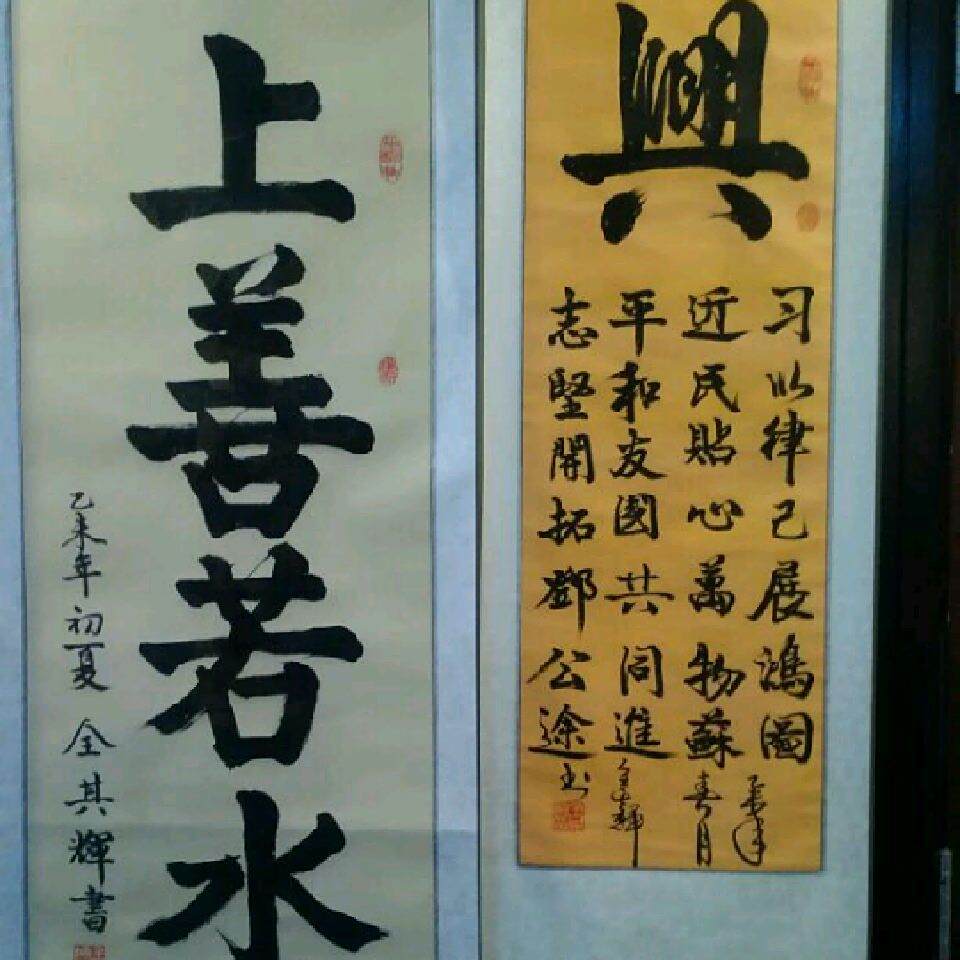 上善若水
乙未年初夏 全其輝書
興
习以律己展鴻圖
近民貼心萬物蘇
平和友國共同進
志堅開拓鄧公途
春月
书